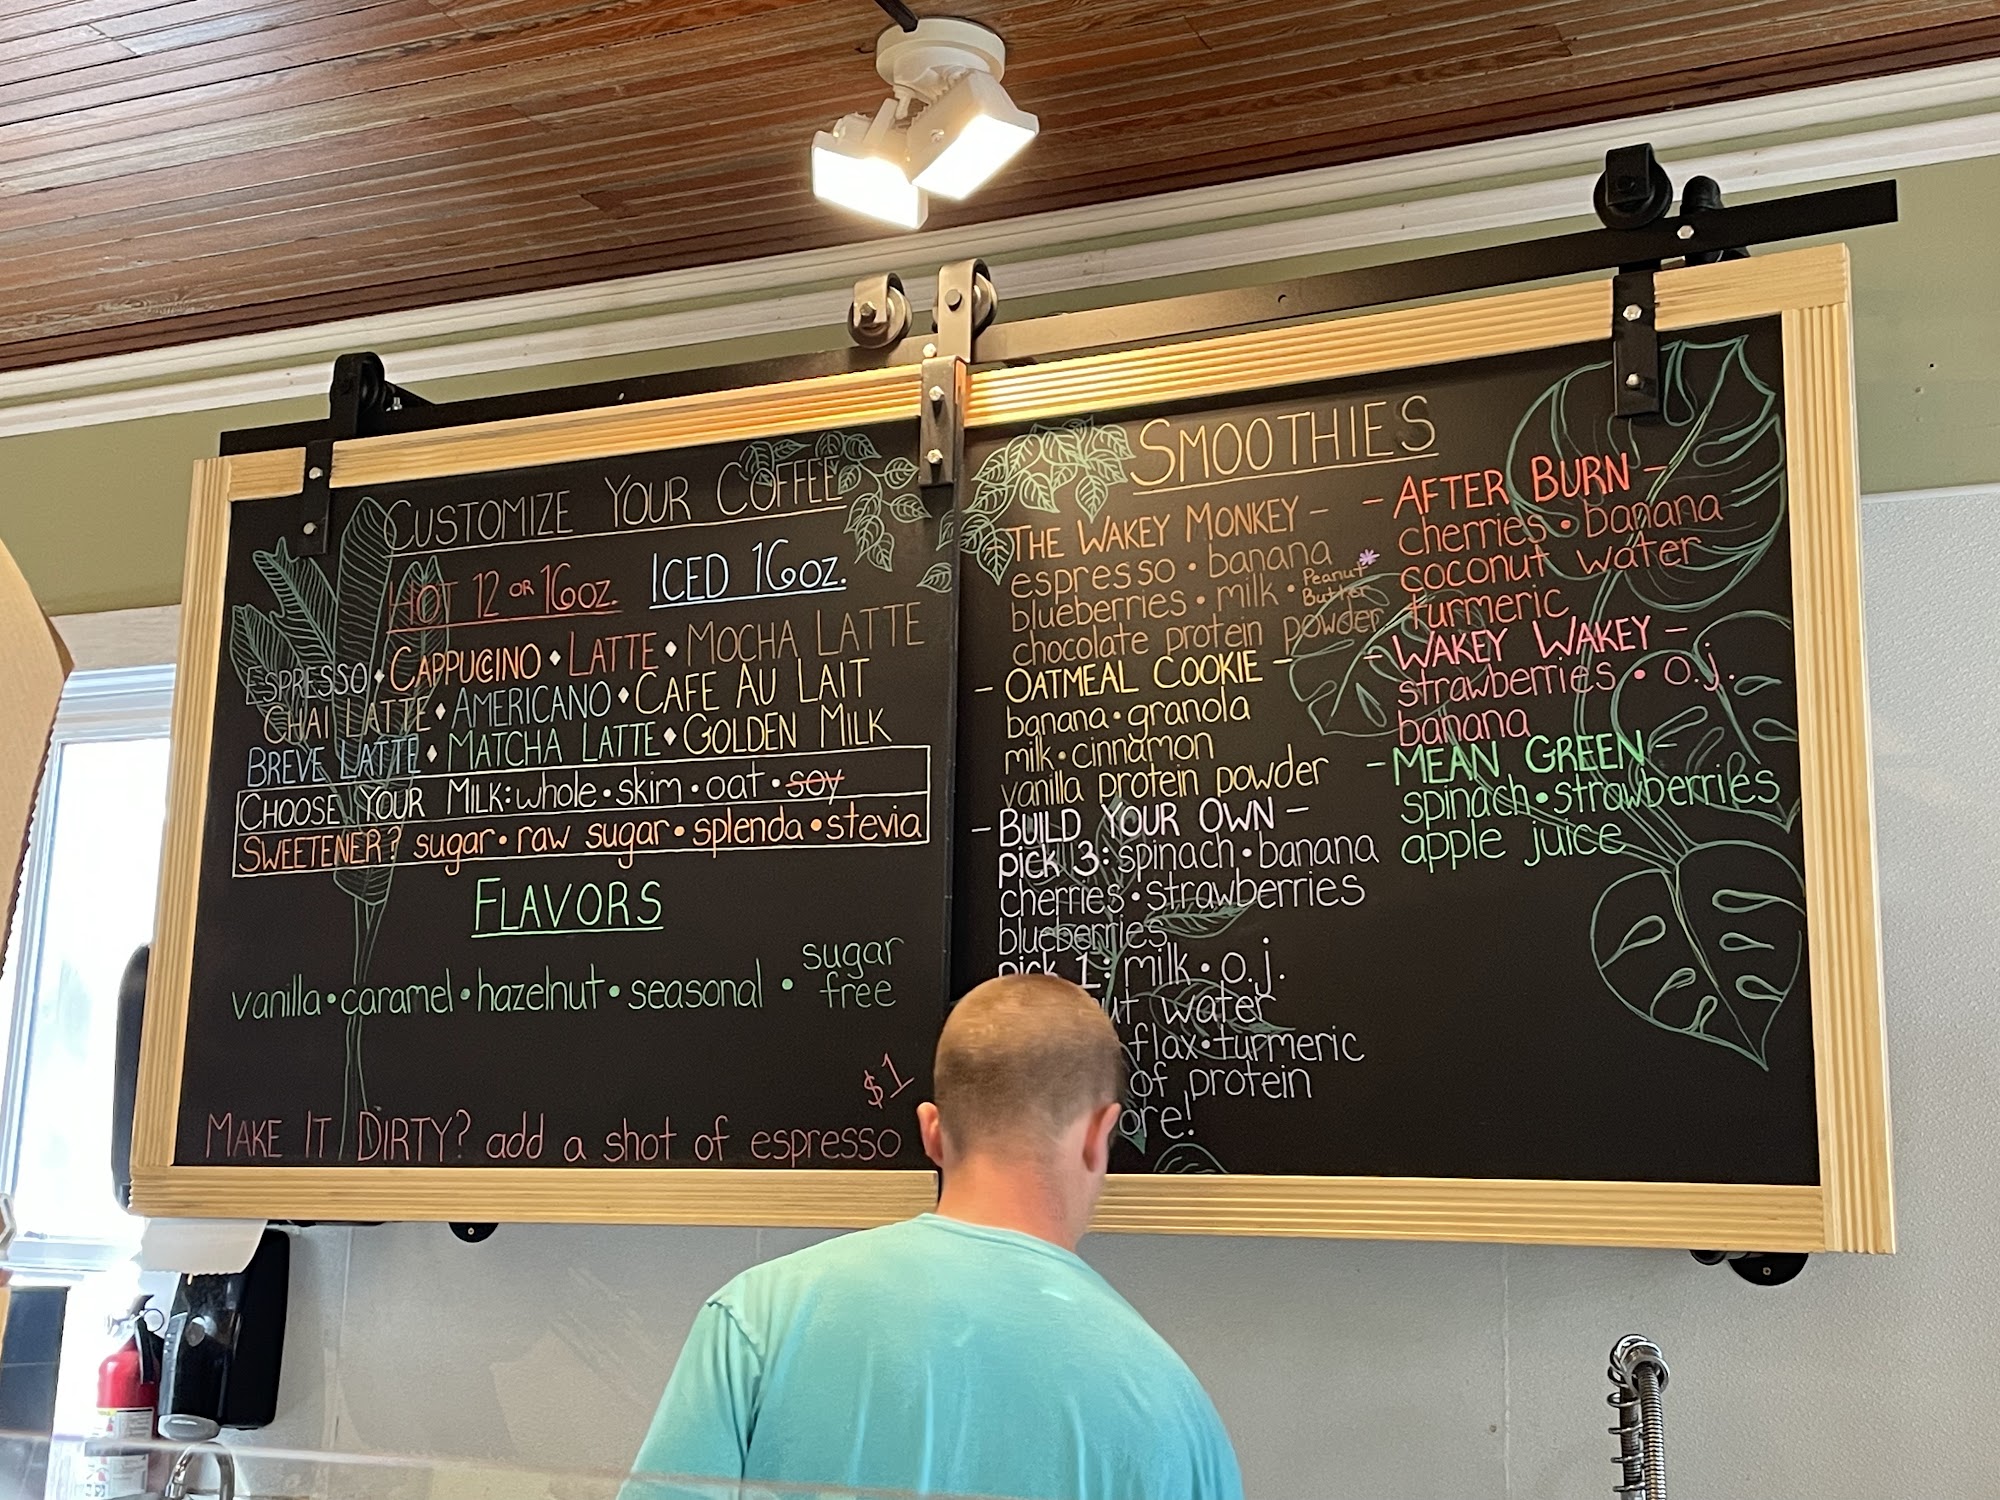 CUSTOMIZE YOUR COFFEE
HOT 12 OR 16oz. ICED 16oz.
ESPRESSO • CAPPUCCINO • LATTE • MOCHA LATTE
CHAI LATTE • AMERICANO • CAFE AU LAIT
BREVE LATTE • MATCHA LATTE • GOLDEN MILK
CHOOSE YOUR MILK: whole • skim • oat • soy
SWEETENER? sugar • raw sugar • splenda • stevia
FLAVORS
vanilla • caramel • hazelnut • seasonal • sugar free
$1
MAKE IT DIRTY? add a shot of espresso
SMOOTHIES
THE WAKEY MONKEY -
espresso • banana
blueberries • milk • Peanut Butter *
chocolate protein powder
- OATMEAL COOKIE -
banana • granola
milk • cinnamon
vanilla protein powder
- BUILD YOUR OWN -
pick 3: spinach • banana
cherries • strawberries
blueberries
pick 1: milk • o.j.
water
flax • turmeric
of protein
- AFTER BURN -
cherries • banana
coconut water
turmeric
- WAKEY WAKEY -
strawberries • o.j.
banana
- MEAN GREEN -
spinach • strawberries
apple juice